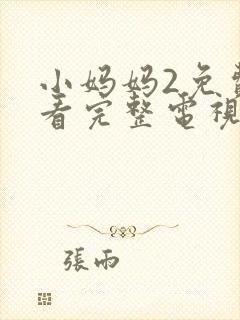 小妈妈2免費
看完整電視
張雨